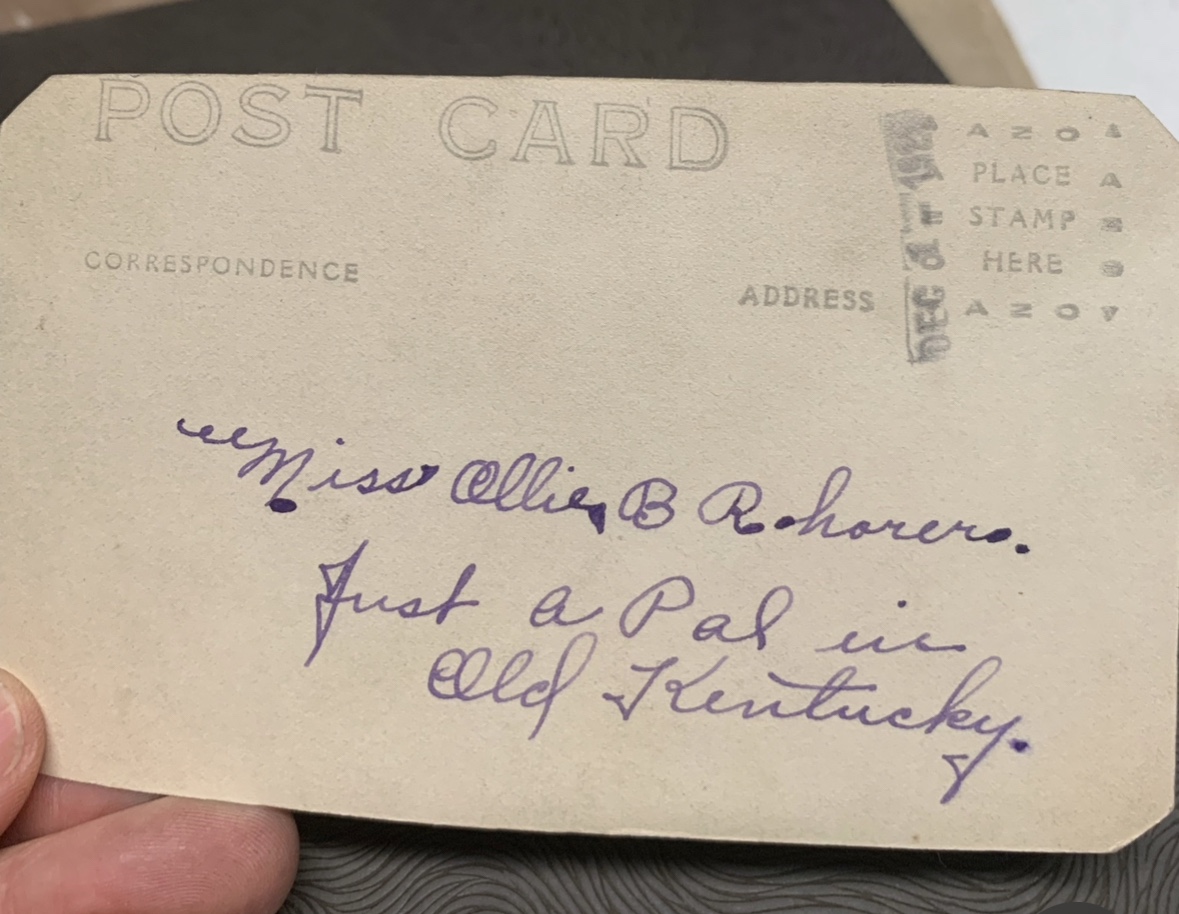 POST CARD
CORRESPONDENCE
ADDRESS
AZO
PLACE
STAMP
HERE
AZO
DEC 31
Miss Ollie B Rohorer.
Just a Pal in
Old Kentucky.